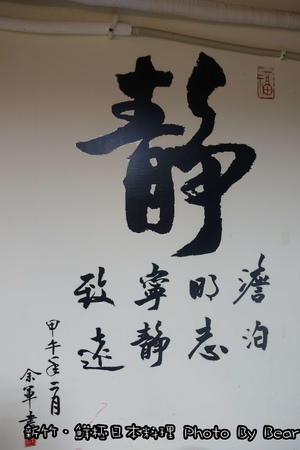 靜
福
澹泊
明志
寧靜
致遠
甲午年二月
余軍書
新竹·鮮極日本料理 Photo By Bear